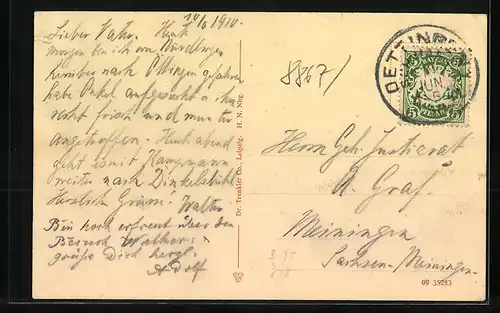 10/6 1910.
Lieber Vater, Heute
morgen bin ich von Nördlingen
herüber nach Öttingen gefahren
habe Onkel aufgesucht u. ihn
recht frisch und munter
angetroffen. Heut abend
geht es mit
weiter nach Dinkelsbühl
Herzlich Grüsse! Walter
Bin hoch erfreut über den
Besuch Walthers u.
grüße Dich herzl.
Adolf
Dr. Trenkler Co., Leipzig. H. N. Nbg.
8867/
OETTINGEN
JUN
BAYERN
5 PFENNIG 5
Herrn Geh. Justizrat
A. Graf.
Meiningen
Sachsen-Meiningen.
09 35283